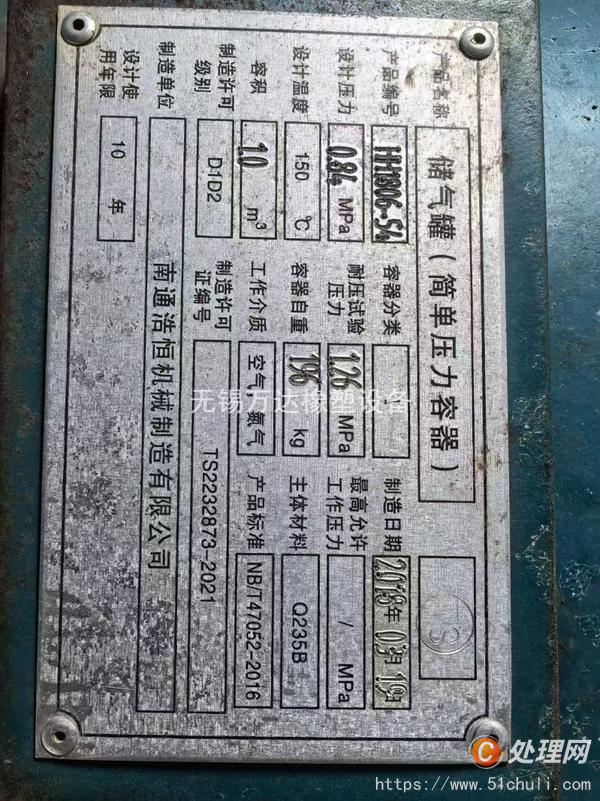 产品名称 储气罐(简单压力容器)
产品编号 HH1806-54 容器分类 制造日期 2018年 03月 19日
设计压力 0.84 MPa 耐压试验压力 1.26 MPa 最高允许工作压力 / MPa
设计温度 150 ℃ 容器自重 196 kg 主体材料 Q235B
容积 1.0 m³ 工作介质 空气/氮气 产品标准 NB/T47052-2016
制造许可级别 D1D2 制造许可证编号 TS2232873-2021
制造单位 南通浩恒机械制造有限公司
设计使用年限 10 年
TS
无锡万达橡塑设备
C 处理网
https://www.51chuli.com/